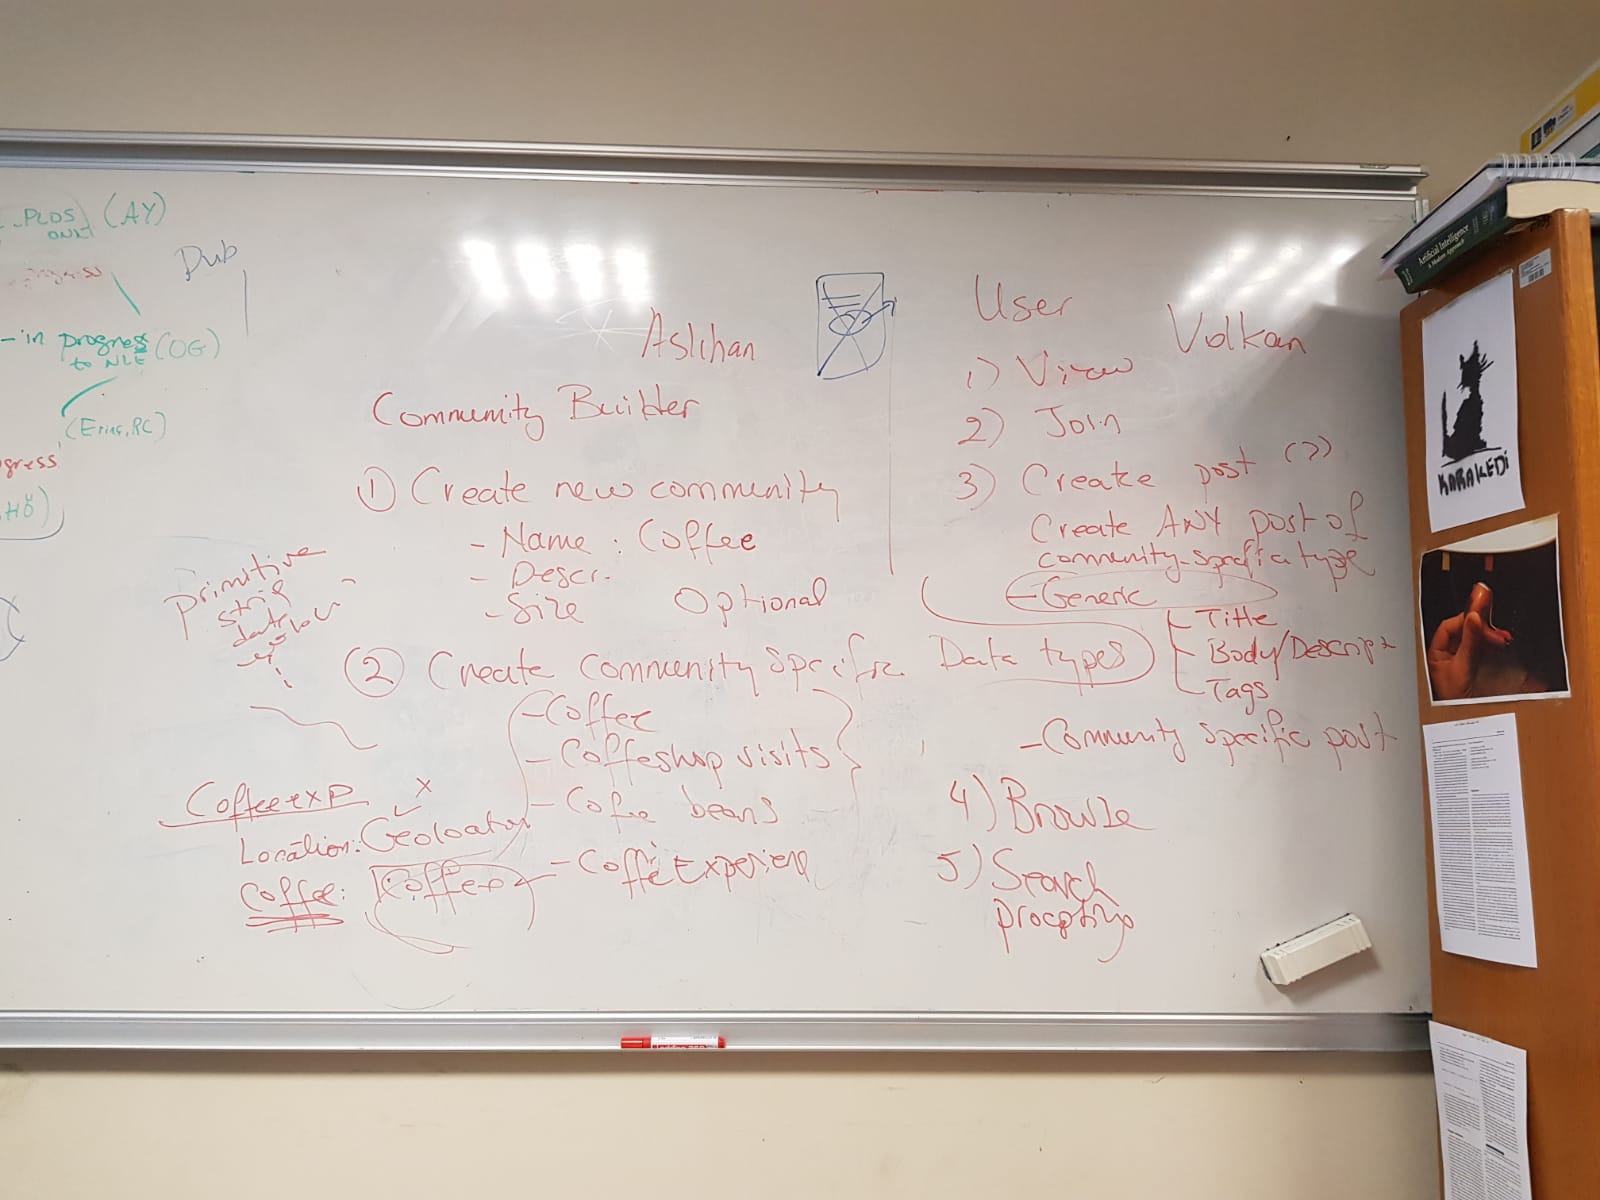 PLOS (AY)
ONE
Dub
- in progress (OG)
to NLE
(Erinc, RC)
gress
Aslihan
Community Builder
① Create new community
- Name : Coffee
- Descr.
- Size Optional
primitive
date
② Create Community Specific Data types
- Coffee
- Coffeshop visits
- Cofee beans
- Coffe Experienc
Coffee exp
Location: Geolocation
Coffee: Coffee
User
Volkan
1) View
2) Join
3) Create post (?)
Create ANY post of
community-specific type
- Generic
- Title
- Body/Descript
- Tags
- Community specific post
4) Browse
5) Search
Artificial Intelligence
A Modern Approach
KARAKEDİ